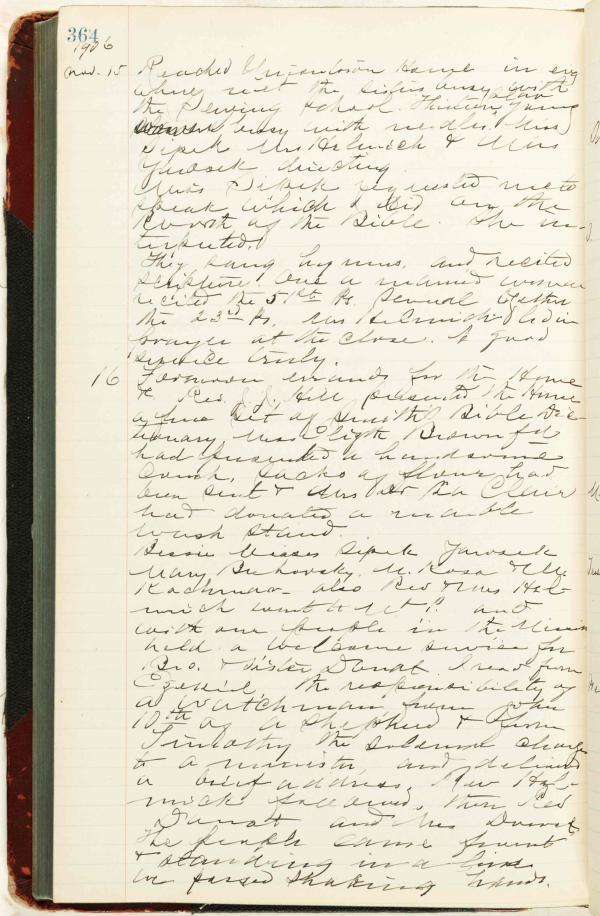 364
1906
Nov. 15 Reached Home in eve
where met the sisters busy with
the Sewing School. Thirteen young
women busy with needles Miss
Sipek Mrs Helmich & Miss
Yarosek directing
Miss Sipek requested me to
speak which I did on the
Worth of the Bible. She in-
terpreted.
They sang hymns, and recited
scripture. One a married woman
recited the 51st Ps. several together
the 23rd Ps. Mrs Helmich led in
prayer at the close. A good
service truly.
16 Forenoon errands for the Home
& Rev. J. J. Hill presented the Home
a fine set of Smith's Bible Dic-
tionary
had presented a handsome
couch, sacks of flour had
been sent & Mrs La Clair
had donated a marble
wash stand.
Bessie Misses Sipek Yarosek
Mary Bukovsky, M. Rosa &
Kachmar also Rev & Mrs Hel-
mich went to Mt P. and
with our people in the Mission
held a welcome service for
Bro. & Sister Donat. I read from
Ezekiel, the responsibility of
a watchman from John
10th of a shepherd & from
Timothy the solemn charge
to a minister and delivered
a brief address, Rev Hel-
mich followed, then Rev
Donat and Mrs Donat
The people came front
& standing in a line
we passed shaking hands.